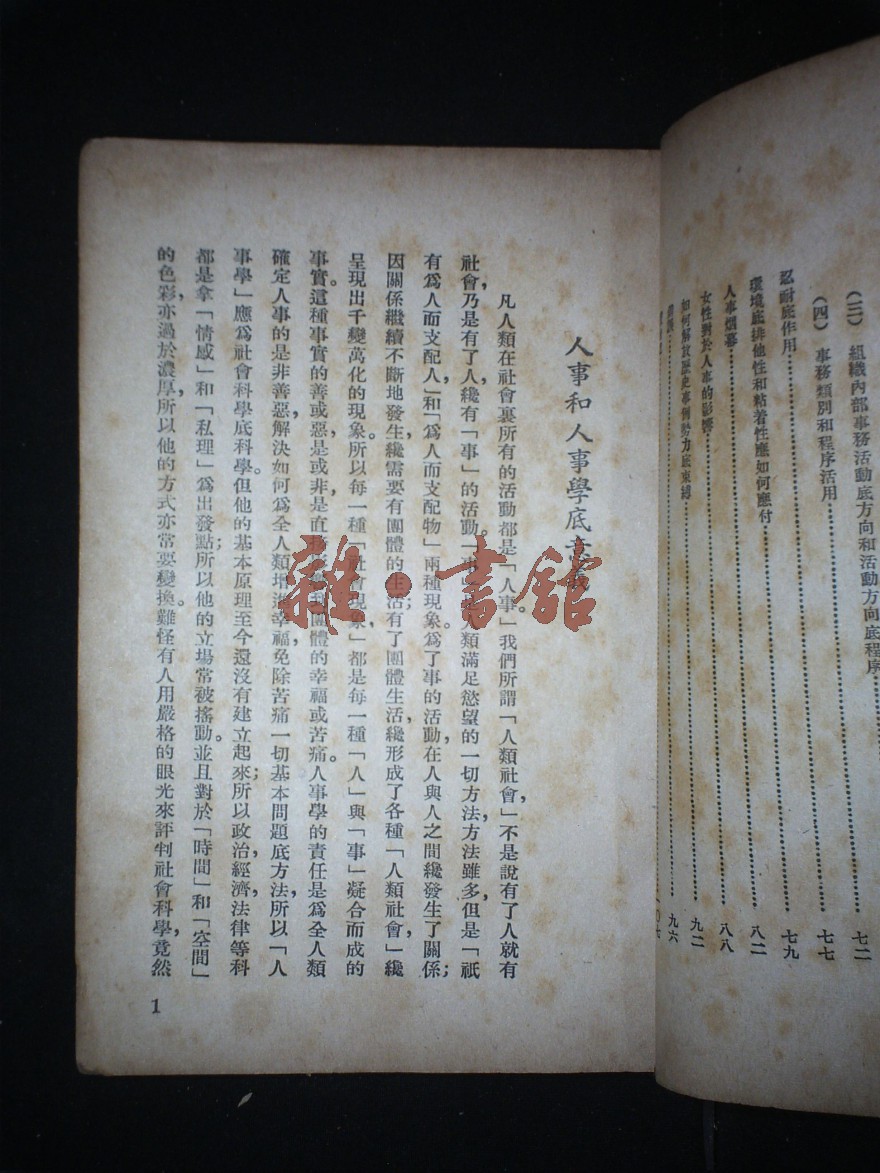 (三) 組織內部事務活動底方向和活動方向底程序 七二
(四) 事務類別和程序活用 七七
忍耐底作用 七九
環境底排他性和粘着性應如何應付 八二
人事烟幕 八八
女性對於人事的影響 九二
如何解放歷史事例勢力底束縛 九六
人事和人事學底意義
凡人類在社會裏所有的活動都是「人事」我們所謂「人類社會」不是說有了人就有
社會,乃是有了人,纔有「事」的活動,「事」是人類滿足慾望的一切方法,方法雖多,但是「祇
有爲人而支配人」和「爲人而支配物」兩種現象。爲了事的活動,在人與人之間纔發生了關係;
因關係繼續不斷地發生,纔需要有團體的生活;有了團體生活,纔形成了各種「人類社會」,纔
呈現出千變萬化的現象。所以每一種「社會現象」都是每一種「人」與「事」凝合而成的
事實。這種事實的善或惡,是或非,是直接影響到團體的幸福或苦痛。人事學的責任是爲全人類
確定人事的是非善惡,解決如何爲全人類增進幸福,免除苦痛一切基本問題底方法,所以「人
事學」應爲社會科學底科學。但他的基本原理至今還沒有建立起來;所以政治,經濟,法律等科
都是拿「情感」和「私理」爲出發點;所以他的立場常被搖動。並且對於「時間」和「空間」
的色彩,亦過於濃厚,所以他的方式亦常要變換。難怪有人用嚴格的眼光來評判社會科學,竟然
1
雜·書館